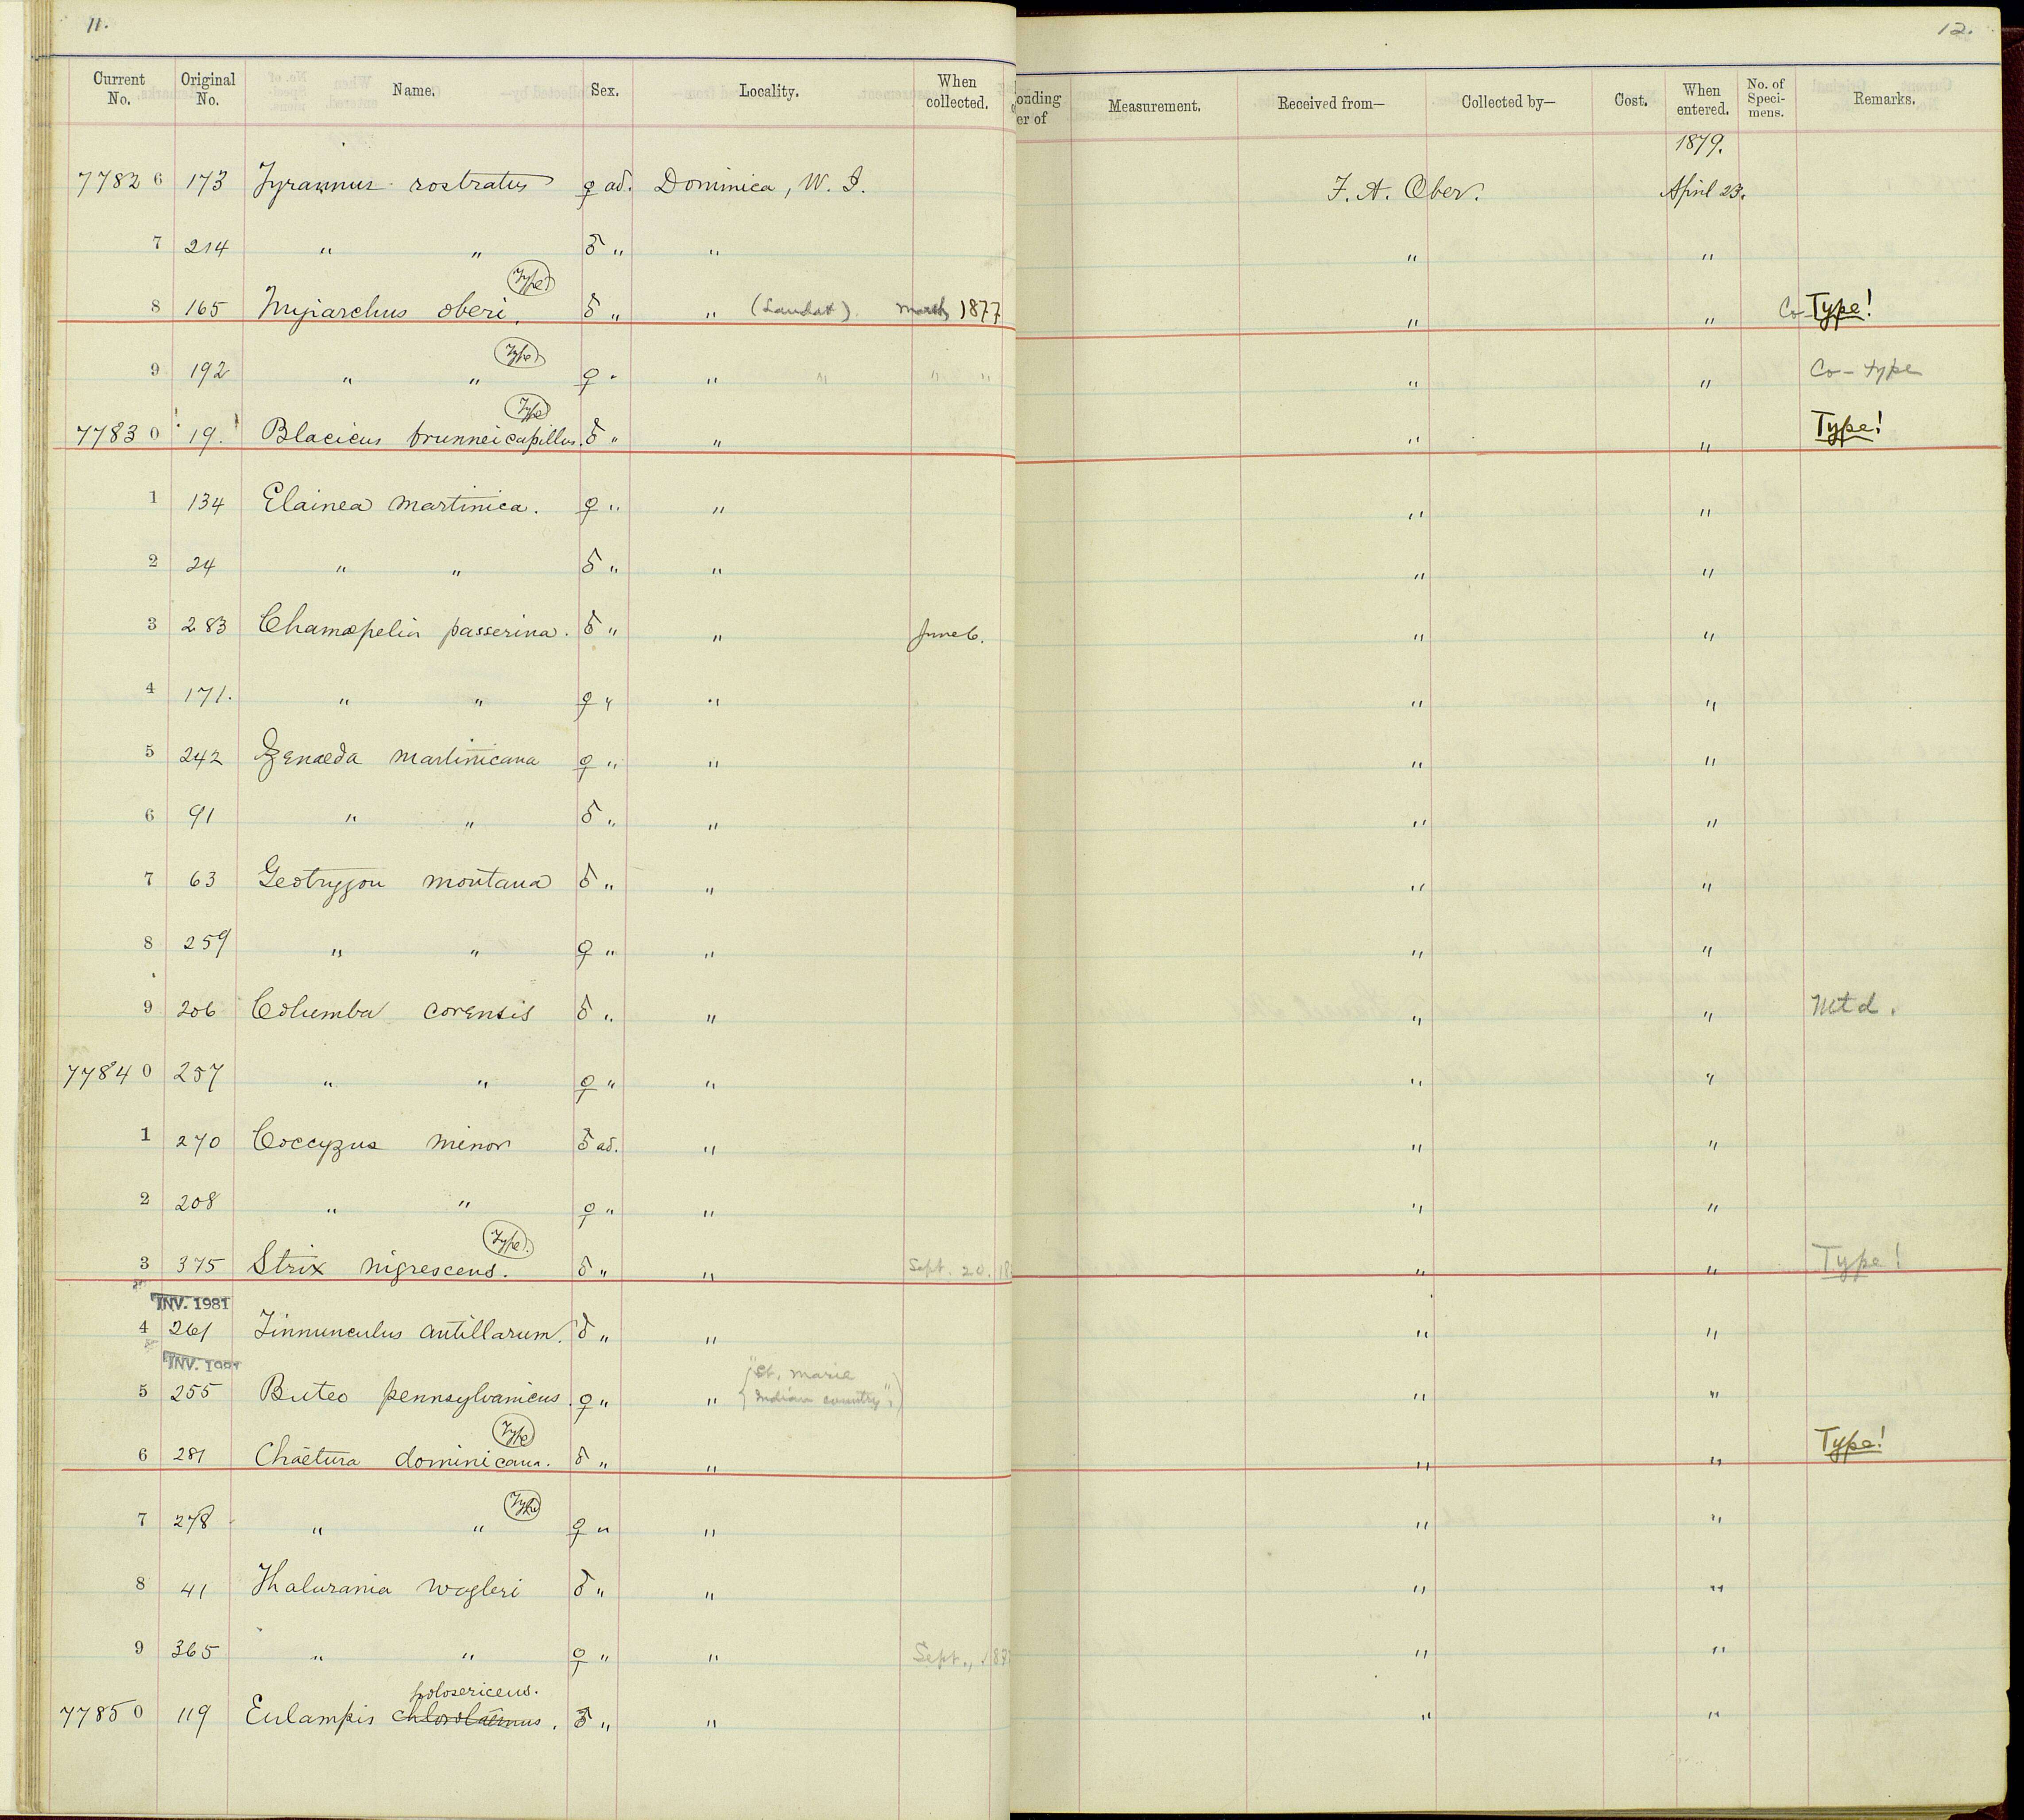 11.
12.
Current No. Original No. Name. Sex. Locality. When collected. onding er of Measurement. Received from— Collected by— Cost. When entered. No. of Speci-mens. Remarks.
1879.
7782 6 173 Tyrannus rostratus ♀ ad. Dominica, W. I. F. A. Ober. April 23.
7 214 " " ♂ " " " "
Type
8 165 Myiarchus oberi. ♂ " " (Laudat) March 1877 " " Co-Type!
Type
9 192 " " ♀ " " " " " " " Co-type
Type
7783 0 19. Blacicus brunneicapillus. ♂ " " " " Type!
1 134 Elainea martinica. ♀ " " " "
2 24 " " ♂ " " " "
3 283 Chamæpelia passerina. ♂ " " June 6. " "
4 171. " " ♀ " " " "
5 242 Zenaeda martinicana ♀ " " " "
6 91 " " ♂ " " " "
7 63 Geotrygon montana ♂ " " " "
8 259 " " ♀ " " " "
9 206 Columba corensis ♂ " " " " Mtd.
7784 0 257 " " ♀ " " " "
1 270 Coccyzus minor ♂ ad. " " "
2 208 " " ♀ " " " "
Type.
3 375 Strix nigrescens. ♂ " " Sept. 20. " " Type!
INV. 1981
4 261 Tinnunculus antillarum. ♂ " " " "
INV. 1981
"St. Marie
5 255 Buteo pennsylvanicus. ♀ " " Indian country" " "
Type
6 281 Chaetura dominicana. ♂ " " " " Type!
Type
7 278 " " ♀ " " " "
8 41 Thalurania wagleri ♂ " " " "
9 365 " " ♀ " " Sept., " "
holosericeus.
7785 0 119 Eulampis chlorolaemus. ♂ " " " "